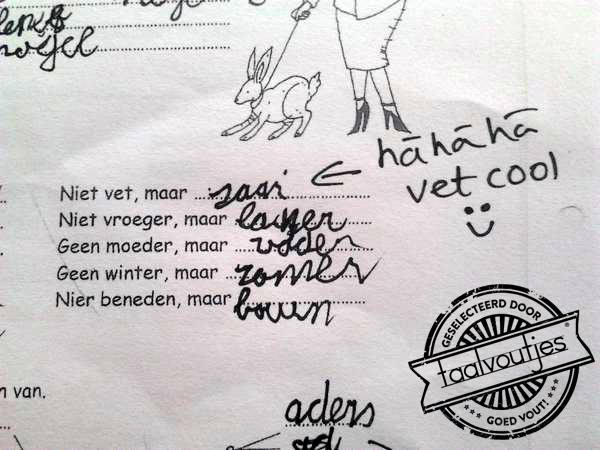 hāhāhā
vet cool
Niet vet, maar saai
Niet vroeger, maar later
Geen moeder, maar vader
Geen winter, maar zomer
Nier beneden, maar boven
GESELECTEERD DOOR
taalvoutjes
GOED VOUT!
n van.
aders